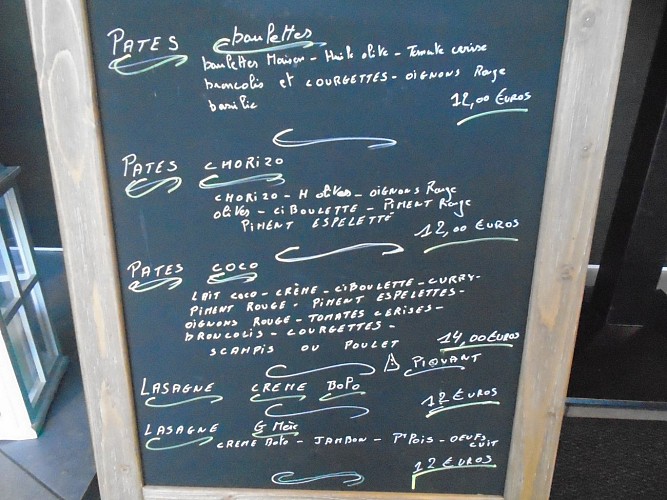 PATES boulettes
boulettes Maison - Huile olive - Tomate cerise
broncolis et COURGETTES - OIGNONS Rouge
basilic
12,00 EUROS
PATES CHORIZO
CHORIZO - H olives - OIGNONS Rouge
olives - CIBOULETTE - PIMENT Rouge
PIMENT ESPELETTE
12,00 EUROS
PATES COCO
LAIT COCO - CRÈME - CIBOULETTE - CURRY -
PIMENT ROUGE - PIMENT ESPELETTES -
OIGNONS ROUGE - TOMATES CERISES -
BRONCOLIS - COURGETTES -
SCAMPIS OU POULET
14,00 EUROS
PIQUANT
LASAGNE CREME BOLO
12 EUROS
LASAGNE G
CREME BOLO - JAMBON - Pts POIS - OEUFS
CUIT
12 EUROS